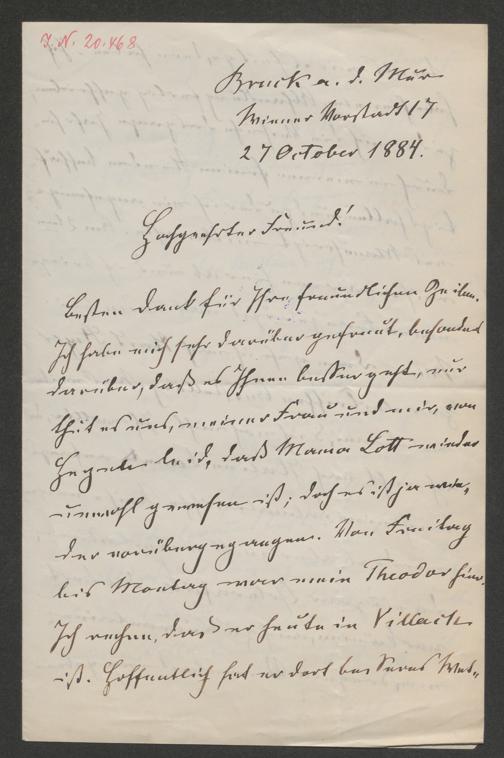 J. N. 20.468
Bruck a. d. Mur
Wiener Vorstadt 17
27 October 1884.
Hochgeehrter Freund!
Besten Dank für Ihre freundlichen Zeilen.
Ich habe mich sehr darüber gefreut, besonders
darüber, daß es Ihnen besser geht, nur
thut es uns, meiner Frau und mir, von
Herzen leid, daß Mama Lott wieder
unwohl gewesen ist; doch es ist ja wie-
der vorübergegangen. Von Freitag
bis Montag war mein Theodor hier.
Ich rechne, daß er heute in Villach
ist. Hoffentlich hat er dort besseres Wet-